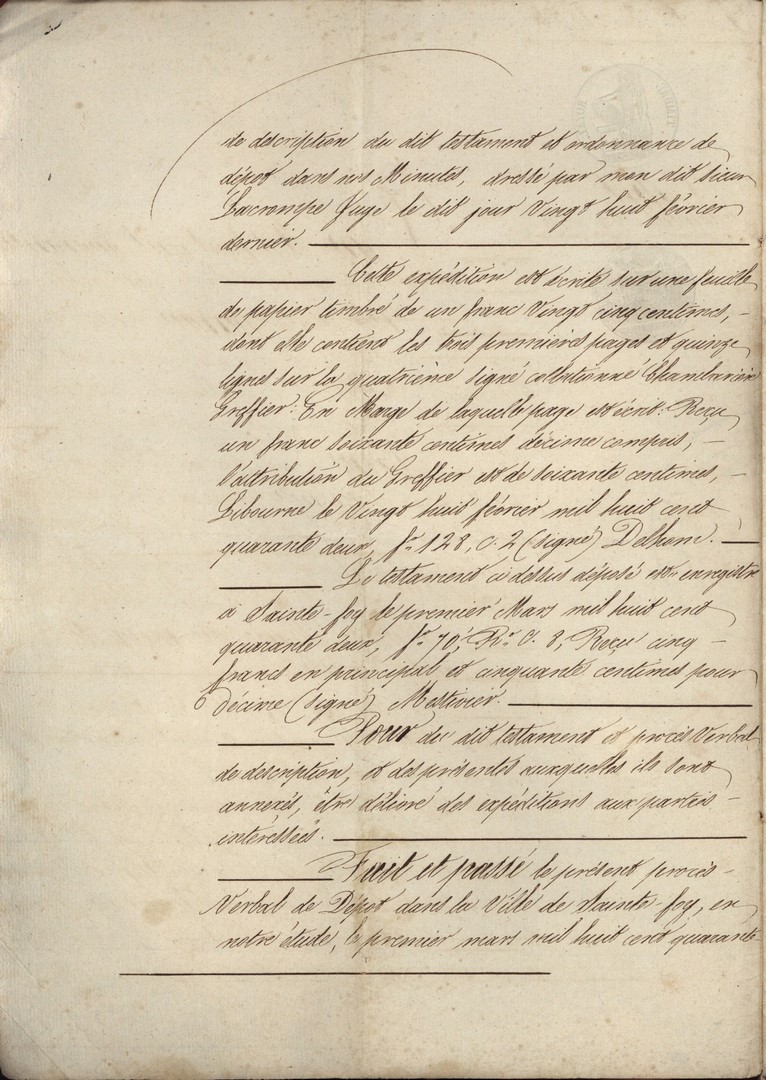 de description du dit testament et ordonnance de
dépot dans nos Minutes, dressé par mon dit sieur
Lacrompe Juge le dit jour Vingt huit février
dernier.
Cette expédition est écrite sur une feuille
de papier timbré de un franc Vingt cinq centimes,
dont elle contient les trois premières pages et quinze
lignes sur la quatrième signé collationné
Greffier: En Marge de laquelle page est écrit: Reçu
un franc soixante centimes décime compris,
l'attribution du Greffier est de soixante centimes,
Libourne le Vingt huit février mil huit cent
quarante deux, fo 128, c. 2 (signé)
Le testament ci dessus déposé est enregistré
à Sainte-foy le premier Mars mil huit cent
quarante deux, fo 70, Ro C. 8, Reçu cinq
francs en principal, et cinquante centimes pour
décime (signé) Mestivier.
Pour du dit testament et procès Verbal
de description, et des présentes auxquelles ils sont
annexés, être délivré des expéditions aux parties
intéressées.
Fait et passé le présent procès-
Verbal de Dépot dans la Ville de Sainte-foy, en
notre étude, le premier mars mil huit cent quarante-